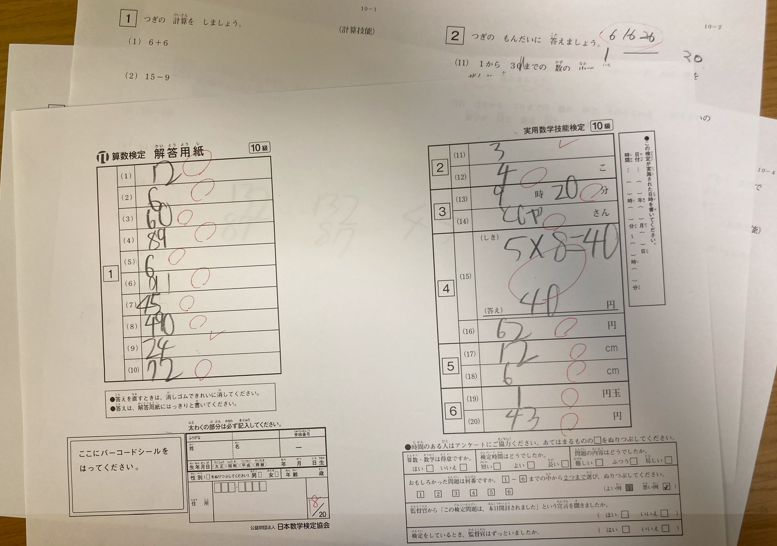 10-1
1 つぎの 計算を しましょう。
(計算技能)
(1) 6+6
(2) 15−9
10-2
2 つぎの もんだいに 答えましょう。
6 16 26
(11) 1から 30までの 数の
30
10-4
算数検定 解答用紙 10級
(1) 12
(2) 6
(3) 60
(4) 89
1
(5) 6
(6) 91
(7) 45
(8) 490
(9) 24
(10) 72
●答えを直すときは、消しゴムできれいに消してください。
●答えは、解答用紙にはっきりと書いてください。
ここにバーコードシールを
はってください。
太わくの部分は必ず記入してください。
姓 名
受検番号
生年月日 大正 昭和 平成 西暦 年 月 日生
性別 男 女 年齢 歳
住所
18
/20
公益財団法人 日本数学検定協会
実用数学技能検定 10級
2
(11) 3
(12) 4 こ
3
(13) 9 時 20 分
(14) さん
4
(15) (しき) 5×8=40
(答え) 40 円
(16) 62 円
5
(17) 12 cm
(18) 6 cm
6
(19) 1 円玉
(20) 43 円
●この検定が実施された日時を書いてください。
●時間のある人はアンケートにご協力ください。あてはまるものの□をぬりつぶしてください。
算数・数学は得意ですか。
はい いいえ
検定時間はどうでしたか。
短い よい 長い
問題の内容はどうでしたか。
難しい ふつう 易しい
おもしろかった問題は何番ですか。 1 ~ 6 までの中から2つまで選び、ぬりつぶしてください。
1 2 3 4 5 6
監督官から「この検定問題は、本日開封されました」という宣言を聞きましたか。
はい いいえ
検定をしているとき、監督官はずっといましたか。
はい いいえ